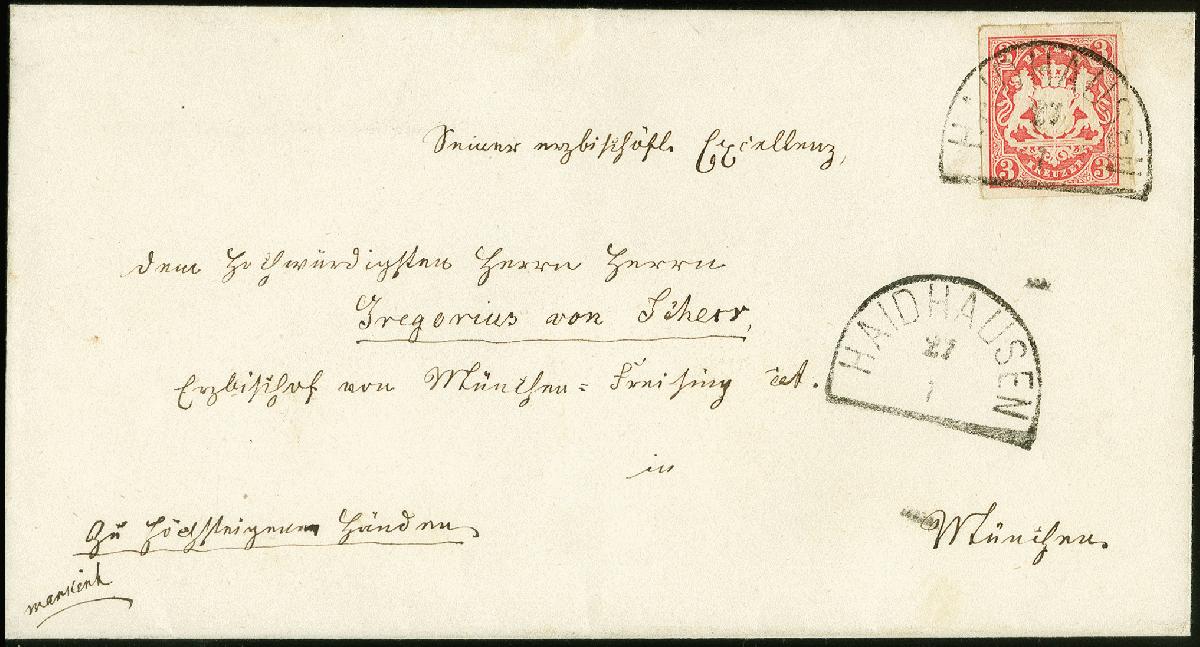 3 BAYERN 3
3 KREUZER 3
HAIDHAUSEN
27
1
Seiner erzbischöfl. Excellenz,
dem Hochwürdigsten Herrn Herrn
Gregorius von Scherr,
Erzbischof von München=Freising
HAIDHAUSEN
27
1
in
München.
Zu höchsteigenen Händen